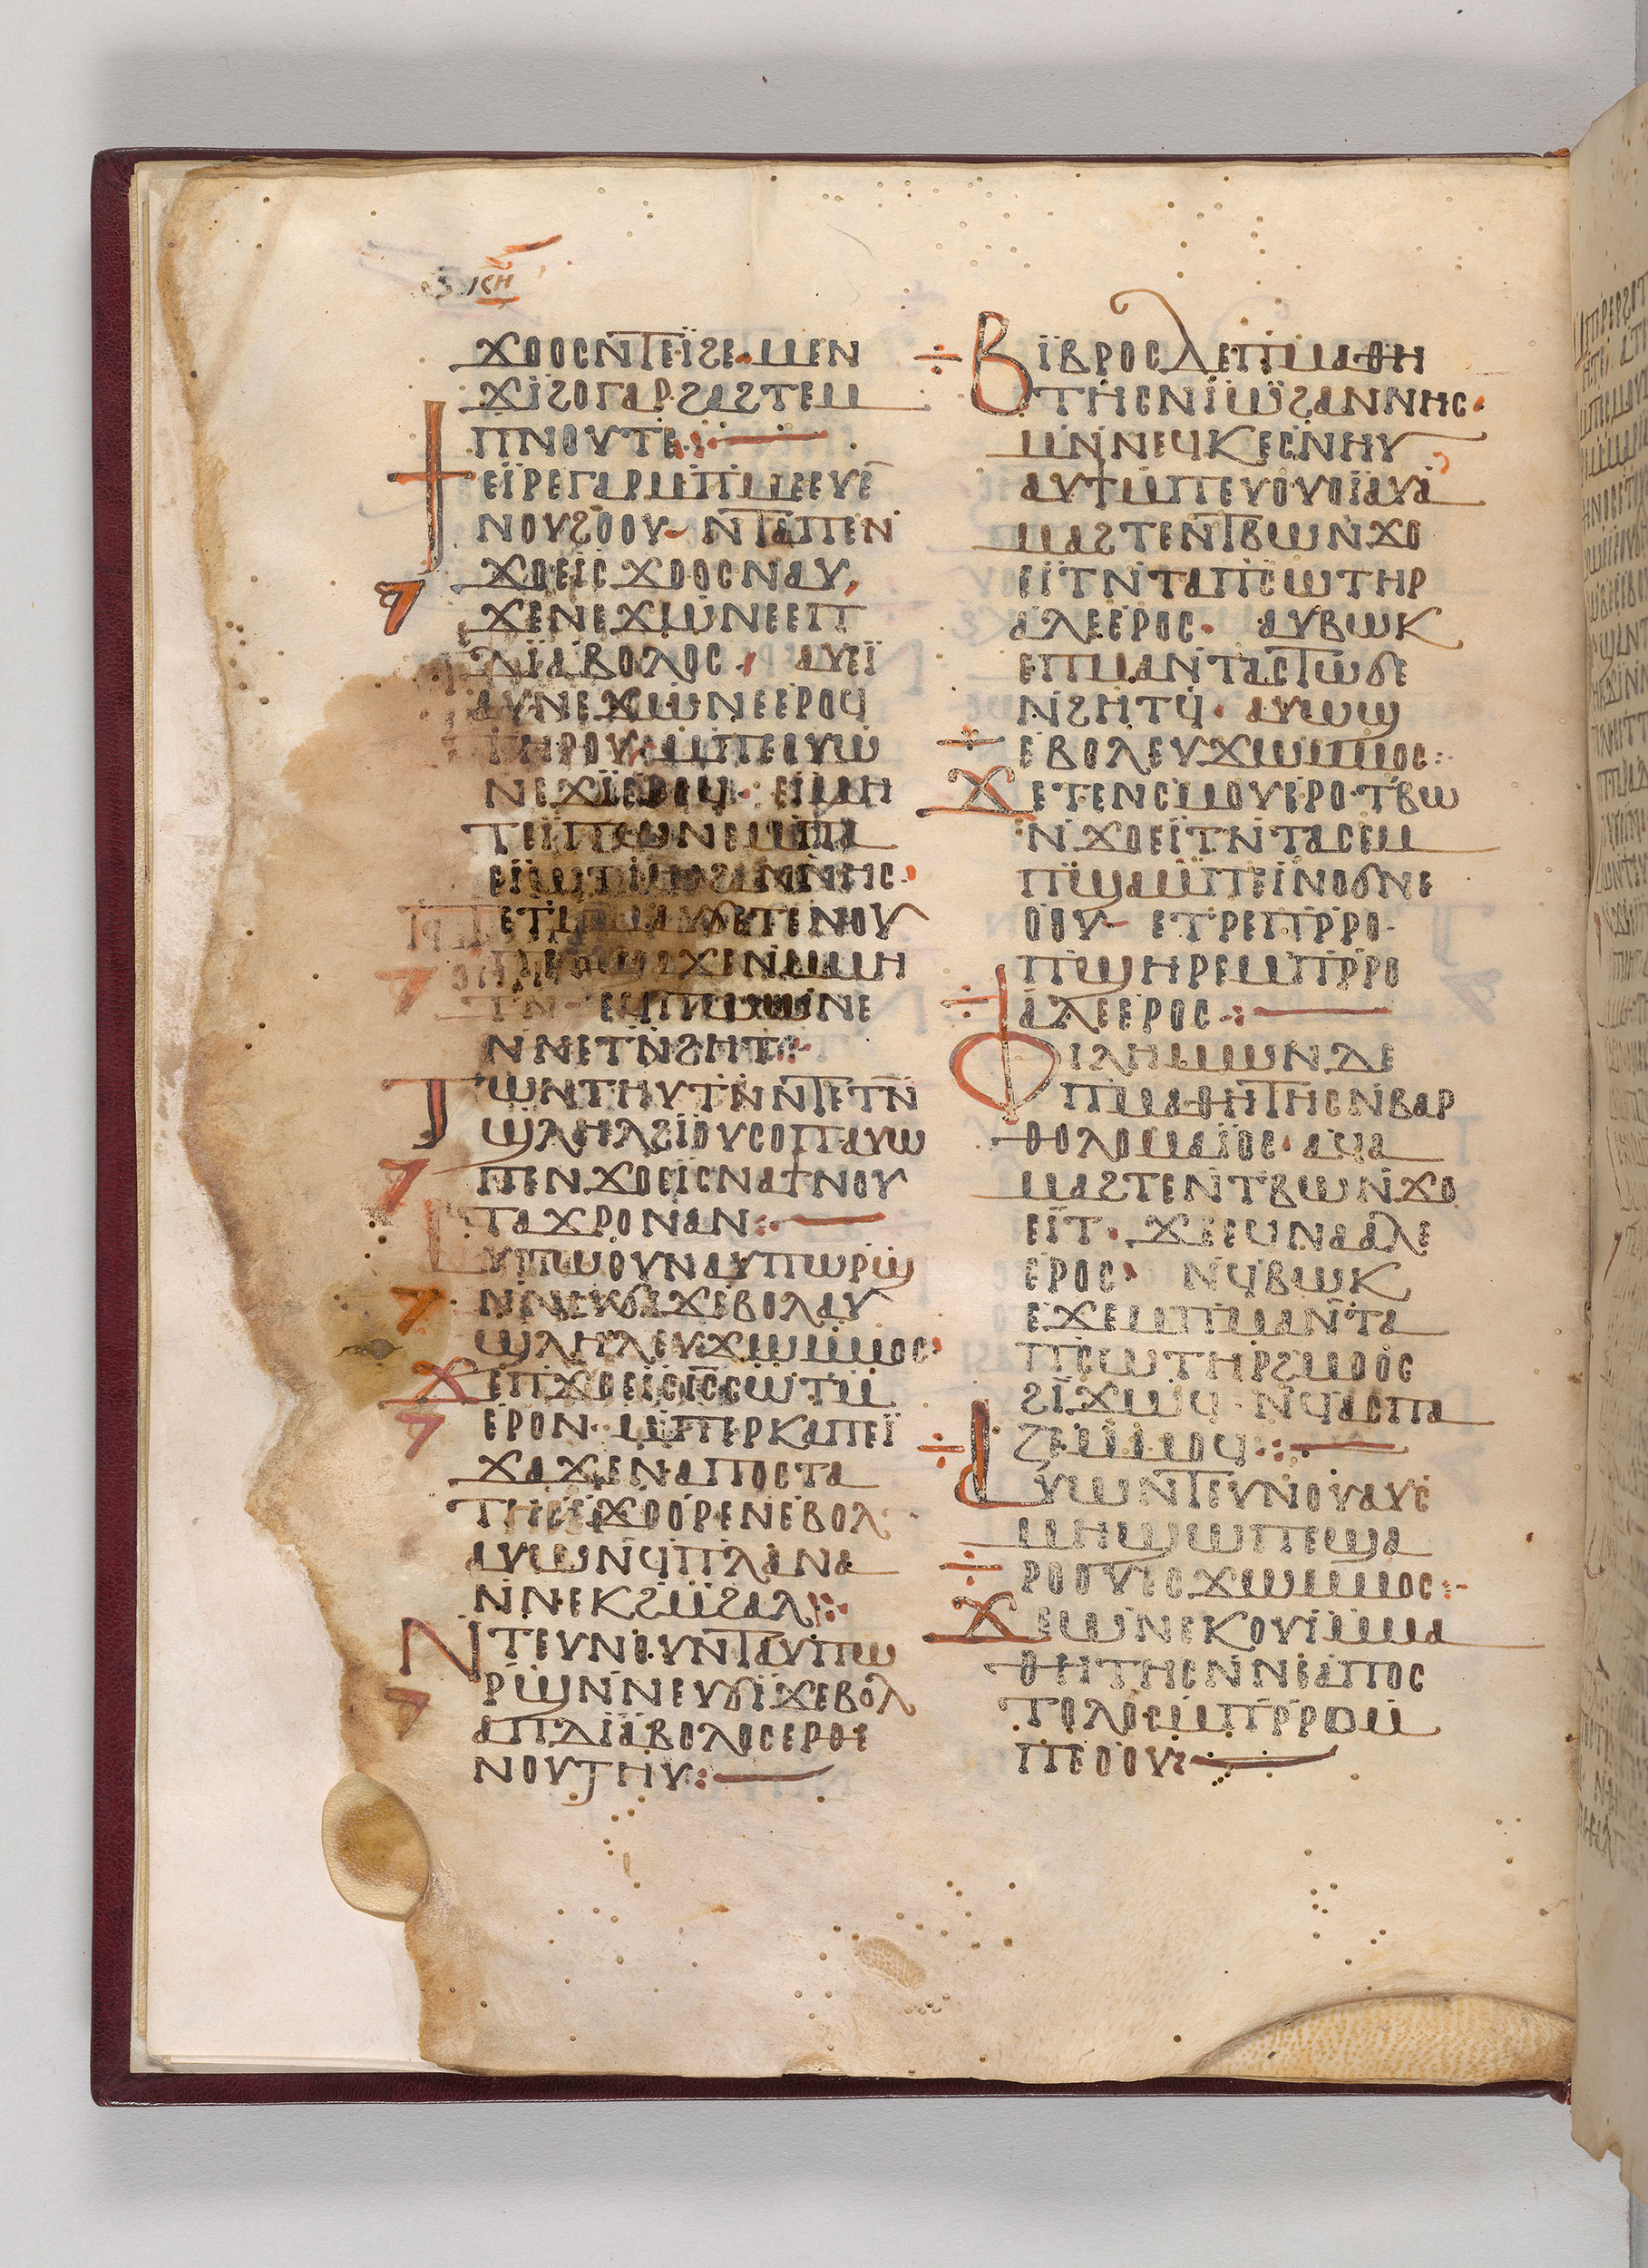 ⲕⲏ
ϫⲟⲟⲥⲛⲧⲉⲓ̈ϩⲉ·ⲙⲉⲛ
ϫⲓ̈ϩⲟⲅⲁⲣ·ϩⲁϩⲧⲉⲙ
ⲡⲛⲟⲩⲧⲉ:
ϯⲉⲓ̈ⲣⲉⲅⲁⲣⲙⲡⲙⲉⲉⲩⲉ̄
ⲛⲟⲩϩⲟⲟⲩ ⲛⲧⲁⲡⲉⲛ
ϫⲟⲉⲓⲥ ϫⲟⲟⲥⲛⲁⲩ
ϫⲉⲛⲉϫⲱⲛⲉⲉⲡ
ⲇⲓ̈ⲁⲃⲟⲗⲟⲥ· ⲁⲩⲉⲓ̈
ⲁⲩⲛⲉϫⲱⲛⲉⲉⲣⲟϥ
ⲧⲏⲣⲟⲩ ⲙⲡⲉⲟⲩⲱ
ⲛⲉϫⲓ̈ⲉⲣⲟϥ· ⲉⲓⲙⲏ
ⲧⲉⲓ̈ⲡⲱⲛⲉⲙⲡⲁ
ⲉⲓ̈ⲱⲧⲓ̈ⲱϩⲁⲛⲛⲏⲥ·
ϫⲉⲛⲙⲙⲏ
ⲧⲛ· ⲉⲙⲡϫⲱⲛⲉ
ⲛⲛⲉⲧⲛϩⲏⲧ:
ⲧⲱⲛⲧⲏⲩⲧⲛⲛⲧⲉⲧⲛ̄
ϣⲗⲏⲗϩⲓ̈ⲟⲩⲥⲟⲡⲁⲩⲱ
ⲡⲉⲛϫⲟⲉⲓ̈ⲥⲛⲁϯⲛⲟⲩ
ⲧⲁϫⲣⲟⲛⲁⲛ:
ⲁⲩⲡⲱⲟⲩⲛⲁⲩⲡⲱⲣϣ
ⲛⲛⲉⲩϭⲓϫⲉⲃⲟⲗⲁⲩ
ϣⲗⲏⲗⲉⲩϫⲱⲙⲙⲟⲥ
ϫⲉⲡϫⲟⲉⲓⲥⲓⲥⲥⲱⲧⲙ
ⲉⲣⲟⲛ· ⲙⲡⲉⲣⲕⲁⲡⲉⲓ̈
ϫⲁϫⲉⲛⲁⲡⲟⲥⲧⲁ
ⲧⲏⲥⲉϫⲟⲟⲣⲉⲛⲉⲃⲟⲗ
ⲁⲩⲱⲛϥⲡⲗⲁⲛⲁ
ⲛⲛⲉⲕϩⲙϩⲁⲗ:
ⲛⲧⲉⲩⲛⲟⲩⲛⲧⲁⲩⲡⲱ
ⲣϣⲛⲛⲉⲩϭⲓϫⲉⲃⲟⲗ
ⲁⲡⲇⲓ̈ⲁⲃⲟⲗⲟⲥⲉⲣⲟⲉ
ⲛⲟⲩⲧⲏⲩ:
ⲃⲓ̈ⲃⲣⲟⲥⲇⲉⲡⲙⲁⲑⲏ
ⲧⲏⲥⲛⲓ̈ⲱϩⲁⲛⲛⲏⲥ·
ⲙⲛⲛⲉϥⲕⲉⲥⲛⲏⲩ
ⲁⲩϯⲙⲡⲉⲩⲟⲩⲟⲓ̈ⲁⲩⲁ
ⲙⲁϩⲧⲉⲛⲧⲃⲱⲛϫⲟ
ⲉⲓ̈ⲧⲛⲧⲁⲡⲥⲱⲧⲏⲣ
ⲁⲗⲉⲉⲣⲟⲥ· ⲁⲩⲃⲱⲕ
ⲉⲡⲙⲁⲛⲧⲁⲥⲧⲱϭⲉ
ⲛϩⲏⲧϥ· ⲁⲩⲱϣ
ⲉⲃⲟⲗⲉⲩϫⲱⲙⲙⲟⲥ:
ϫⲉⲧⲉⲛⲥⲙⲟⲩⲉⲣⲟ·ⲧⲃⲱ
ⲛϫⲟⲉⲓ̈ⲧⲛⲧⲁⲥⲉⲙ
ⲡϣⲁⲙⲡⲉⲓ̈ⲛⲟϭⲛⲉ
ⲟⲟⲩ ⲉⲧⲣⲉⲡⲣⲣⲟ·
ⲡϣⲏⲣⲉⲙⲡⲣⲣⲟ
ⲁⲗⲉⲉⲣⲟⲥ:
ⲫⲓⲗⲏⲙⲱⲛⲇⲉ
ⲡⲙⲁⲑⲏⲧⲏⲥⲛⲃⲁⲣ
ⲑⲟⲗⲟⲙⲁⲓ̈ⲟⲥ·ⲁϥⲁ
ⲙⲁϩⲧⲉⲛⲧⲃⲱⲛϫⲟ
ⲉⲓ̈ⲧ· ϫⲉⲉϥⲛⲁⲁⲗⲉ
ⲉⲣⲟⲥ ⲛϥⲃⲱⲕ
ⲉϫⲉⲙⲡⲙⲁⲛⲧⲁ
ⲡⲥⲱⲧⲏⲣϩⲙⲟⲟⲥ
ϩⲓ̈ϫⲱϥ ⲛϥⲁⲥⲡⲁ
ⲍⲉⲙⲙⲟϥ:
ⲁⲩⲱⲛⲧⲉⲩⲛⲟⲩⲁⲩⲥ
ⲙⲏϣⲱⲡⲉϣⲁ
ⲣⲟⲟⲩⲉⲥϫⲱⲙⲙⲟⲥ:
ϫⲉⲱⲛⲉⲕⲟⲩⲓⲙⲙⲁ
ⲑⲏⲧⲏⲥⲛⲛⲉⲁⲡⲟⲥ
ⲧⲟⲗⲟⲥⲙⲡⲣⲣⲟⲙ
ⲡⲉⲟⲟⲩ: